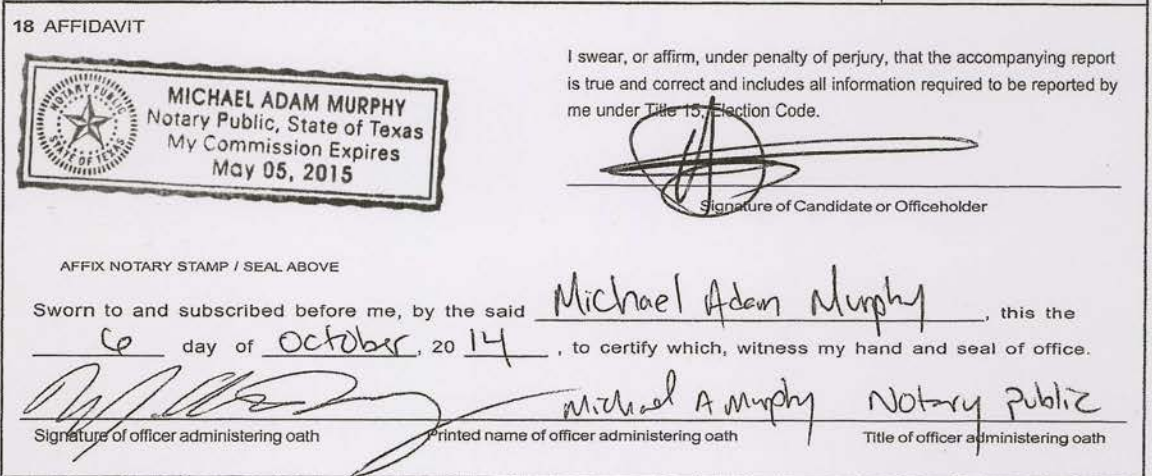 18 AFFIDAVIT
NOTARY PUBLIC
STATE OF TEXAS
MICHAEL ADAM MURPHY
Notary Public, State of Texas
My Commission Expires
May 05, 2015
I swear, or affirm, under penalty of perjury, that the accompanying report
is true and correct and includes all information required to be reported by
me under Title 15, Election Code.
Signature of Candidate or Officeholder
AFFIX NOTARY STAMP / SEAL ABOVE
Sworn to and subscribed before me, by the said Michael Adam Murphy, this the
6 day of October, 20 14, to certify which, witness my hand and seal of office.
Michael A Murphy Notary Public
Signature of officer administering oath Printed name of officer administering oath Title of officer administering oath